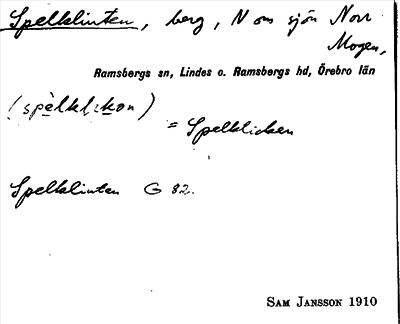 Spelklinten, berg, N om sjön Norr
Mogen,
Ramsbergs sn, Lindes o. Ramsbergs hd, Örebro län
(spèlklikən)
= Spelklicken
Spelklinten G 82.
SAM JANSSON 1910